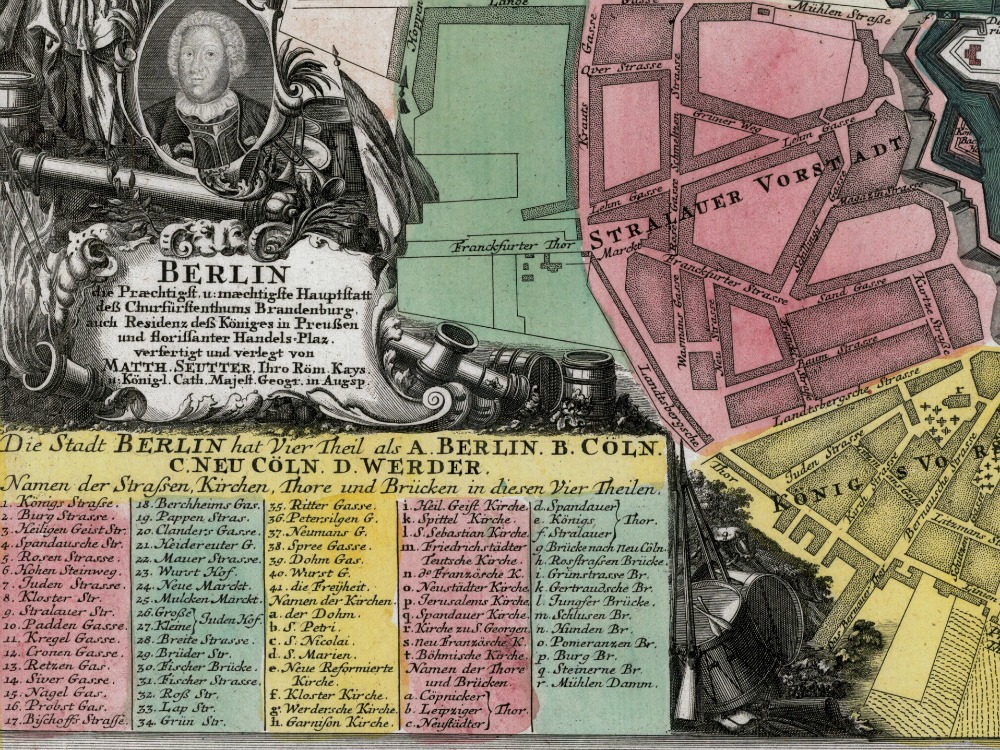 BERLIN
die Præchtigst. u: mæchtigste Hauptstatt
deß Churfürstenthums Brandenburg.
auch Residenz deß Königes in Preußen
und florissanter Handels-Plaz.
verfertigt und verlegt von
MATTH. SEUTTER, Ihro Röm. Kays.
u: Königl. Cath. Majest. Geogr. in Augsp.
Die Stadt BERLIN hat Vier Theil als A. BERLIN. B. CÖLN.
C. NEU CÖLN. D. WERDER.
Namen der Straßen, Kirchen, Thore und Brücken in diesen Vier Theilen.
1. Königs Straße.
2. Burg Strasse.
3. Heiligen Geist Str.
4. Spandausche Str.
5. Rosen Strasse.
6. Hohen Steinweg.
7. Juden Strasse.
8. Kloster Str.
9. Stralauer Str.
10. Padden Gasse.
11. Kregel Gasse.
12. Cronen Gasse.
13. Retzen Gas.
14. Siver Gasse.
15. Nagel Gas.
16. Probst Gas.
17. Bischoffs Straße.
18. Berchheims Gas.
19. Pappen Stras.
20. Clanders Gasse.
21. Heidereuter G.
22. Mauer Strasse.
23. Wurst Hof.
24. Neue Marckt.
25. Mulcken-Marckt
26. Große
27. Kleine } Juden Hof.
28. Breite Strasse.
29. Brüder Str.
30. Fischer Brücke.
31. Fischer Strasse.
32. Roß Str.
33. Lap Str.
34. Grün Str.
35. Ritter Gasse.
36. Petersilgen G.
37. Neumans G.
38. Spree Gasse.
39. Dohm Gas.
40. Wurst G.
41. die Freijheit.
Namen der Kirchen.
a. der Dohm.
b. S. Petri.
c. S. Nicolai.
d. S. Marien.
e. Neue Reformierte
Kirche.
f. Kloster Kirche.
g. Werdersche Kirche.
h. Garnison Kirche.
i. Heil. Geist Kirche.
k. Spittel Kirche.
l. S. Sebastian Kirche.
m. Friedrichstädter
Teutsche Kirche.
n. do Französche K.
o. Neustädter Kirche.
p. Jerusalems Kirche.
q. Spandauer Kirche.
r. Kirche zu S. Georgen
s. neu Französche K.
t. Böhmische Kirch.
Namen der Thore
und Brücken.
a. Cöpnicker
b. Leipziger } Thor.
c. Neustädter
d. Spandauer
e. Königs } Thor.
f. Stralauer
g. Brücke nach Neu Cöln.
h. Rosstraßen Brücke.
i. Grünstrasse Br.
k. Gertraudsche Br.
l. Jungfer Brücke.
m. Schlusen Br.
n. Hunden Br.
o. Pomeranzen Br.
p. Burg Br.
q. Steinerne Br.
r. Mühlen Damm.
Koppen
Lange
Gasse
Mühlen Straße
Gasse
Strasse
Qver Strasse
Krauts
Grüner Weg
Lehm Gasse
Lehm Gasse
STRALAUER VORSTADT
Franckfurter Thor
Marckt
Franckfurter Strasse
Sand Gasse
Kurtze Strasse
Baum Strasse
Landtsbergsche Strasse
Landtsbergsche
Thor
Juden Strasse
KÖNIGS VOR